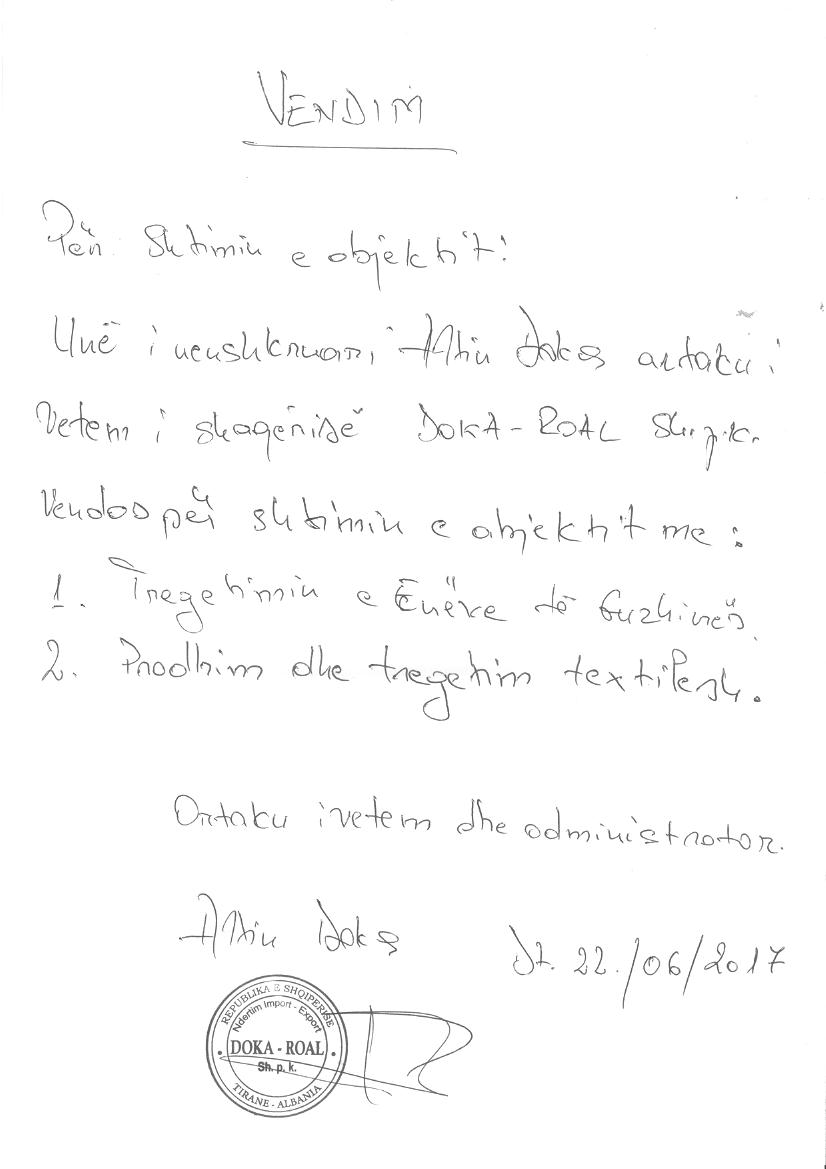 VENDIM
Për Shtimin e objektit:
Unë i nënshkruari, Altin Doka ortaku i
Vetem i shoqërisë DOKA-ROAL Sh.p.k.
Vendos për shtimin e objektit me:
1. Tregetimin e Enëve të Guzhinës.
2. Prodhim dhe tregetim textilesh.
Ortaku i vetem dhe administrator.
Altin Doka
Dt. 22./06/2017
REPUBLIKA E SHQIPERISE
Ndertim Import - Export
DOKA - ROAL
Sh. p. k.
TIRANE - ALBANIA